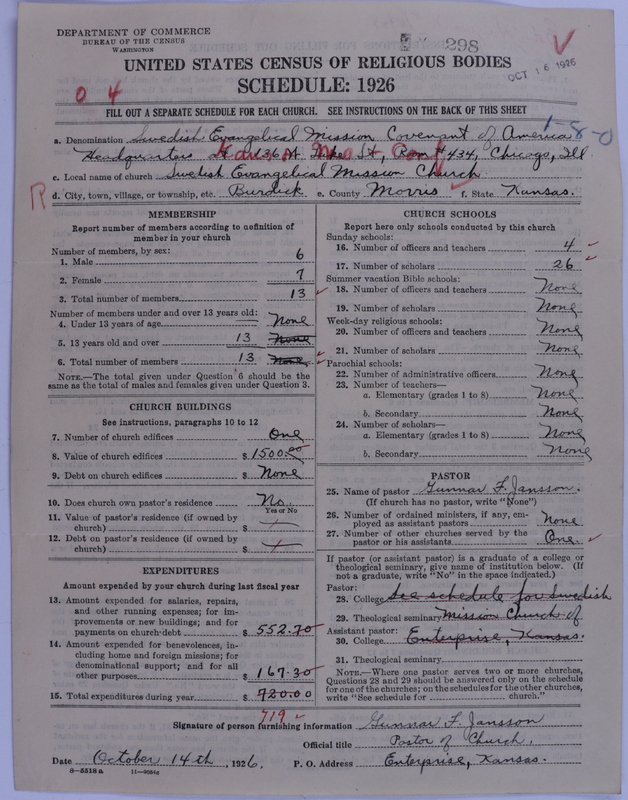 DEPARTMENT OF COMMERCE
BUREAU OF THE CENSUS
WASHINGTON
298
OCT 16 1926
V
UNITED STATES CENSUS OF RELIGIOUS BODIES
SCHEDULE: 1926
0 4
FILL OUT A SEPARATE SCHEDULE FOR EACH CHURCH. SEE INSTRUCTIONS ON THE BACK OF THIS SHEET
1-8-0
a. Denomination Swedish Evangelical Mission Covenant of America
Headquarters St, Room #434, Chicago, Ill
c. Local name of church Swedish Evangelical Mission Church
R
d. City, town, village, or township, etc. Burdick e. County Morris f. State Kansas.
MEMBERSHIP
Report number of members according to definition of
member in your church
Number of members, by sex:
1. Male 6
2. Female 7
3. Total number of members 13
Number of members under and over 13 years old:
4. Under 13 years of age None
5. 13 years old and over 13 None
6. Total number of members 13 None
NOTE.—The total given under Question 6 should be the
same as the total of males and females given under Question 3.
CHURCH BUILDINGS
See instructions, paragraphs 10 to 12
7. Number of church edifices One
8. Value of church edifices $ 1500.00
9. Debt on church edifices $ None
10. Does church own pastor's residence No.
Yes or No
11. Value of pastor's residence (if owned by
church) $
12. Debt on pastor's residence (if owned by
church) $
EXPENDITURES
Amount expended by your church during last fiscal year
13. Amount expended for salaries, repairs,
and other running expenses; for im-
provements or new buildings; and for
payments on church debt $ 552.70
14. Amount expended for benevolences, in-
cluding home and foreign missions; for
denominational support; and for all
other purposes $ 167.30
15. Total expenditures during year $ 720.00
719
CHURCH SCHOOLS
Report here only schools conducted by this church
Sunday schools:
16. Number of officers and teachers 4
17. Number of scholars 26
Summer vacation Bible schools:
18. Number of officers and teachers None
19. Number of scholars None
Week-day religious schools:
20. Number of officers and teachers None
21. Number of scholars None
Parochial schools:
22. Number of administrative officers None
23. Number of teachers—
a. Elementary (grades 1 to 8) None
b. Secondary None
24. Number of scholars—
a. Elementary (grades 1 to 8) None
b. Secondary None
PASTOR
25. Name of pastor Gunnar F. Jansson.
(If church has no pastor, write "None")
26. Number of ordained ministers, if any, em-
ployed as assistant pastors None
27. Number of other churches served by the
pastor or his assistants One
If pastor (or assistant pastor) is a graduate of a college or
theological seminary, give name of institution below. (If
not a graduate, write "No" in the space indicated.)
Pastor:
28. College See schedule for Swedish
29. Theological seminary Mission Church of
Assistant pastor:
30. College Enterprise, Kansas.
31. Theological seminary
NOTE.—Where one pastor serves two or more churches,
Questions 28 and 29 should be answered only on the schedule
for one of the churches; on the schedules for the other churches,
write "See schedule for church."
Signature of person furnishing information Gunnar F. Jansson
Official title Pastor of Church.
Date October 14th, 1926. P. O. Address Enterprise, Kansas.
8—5518 a 11—9084g